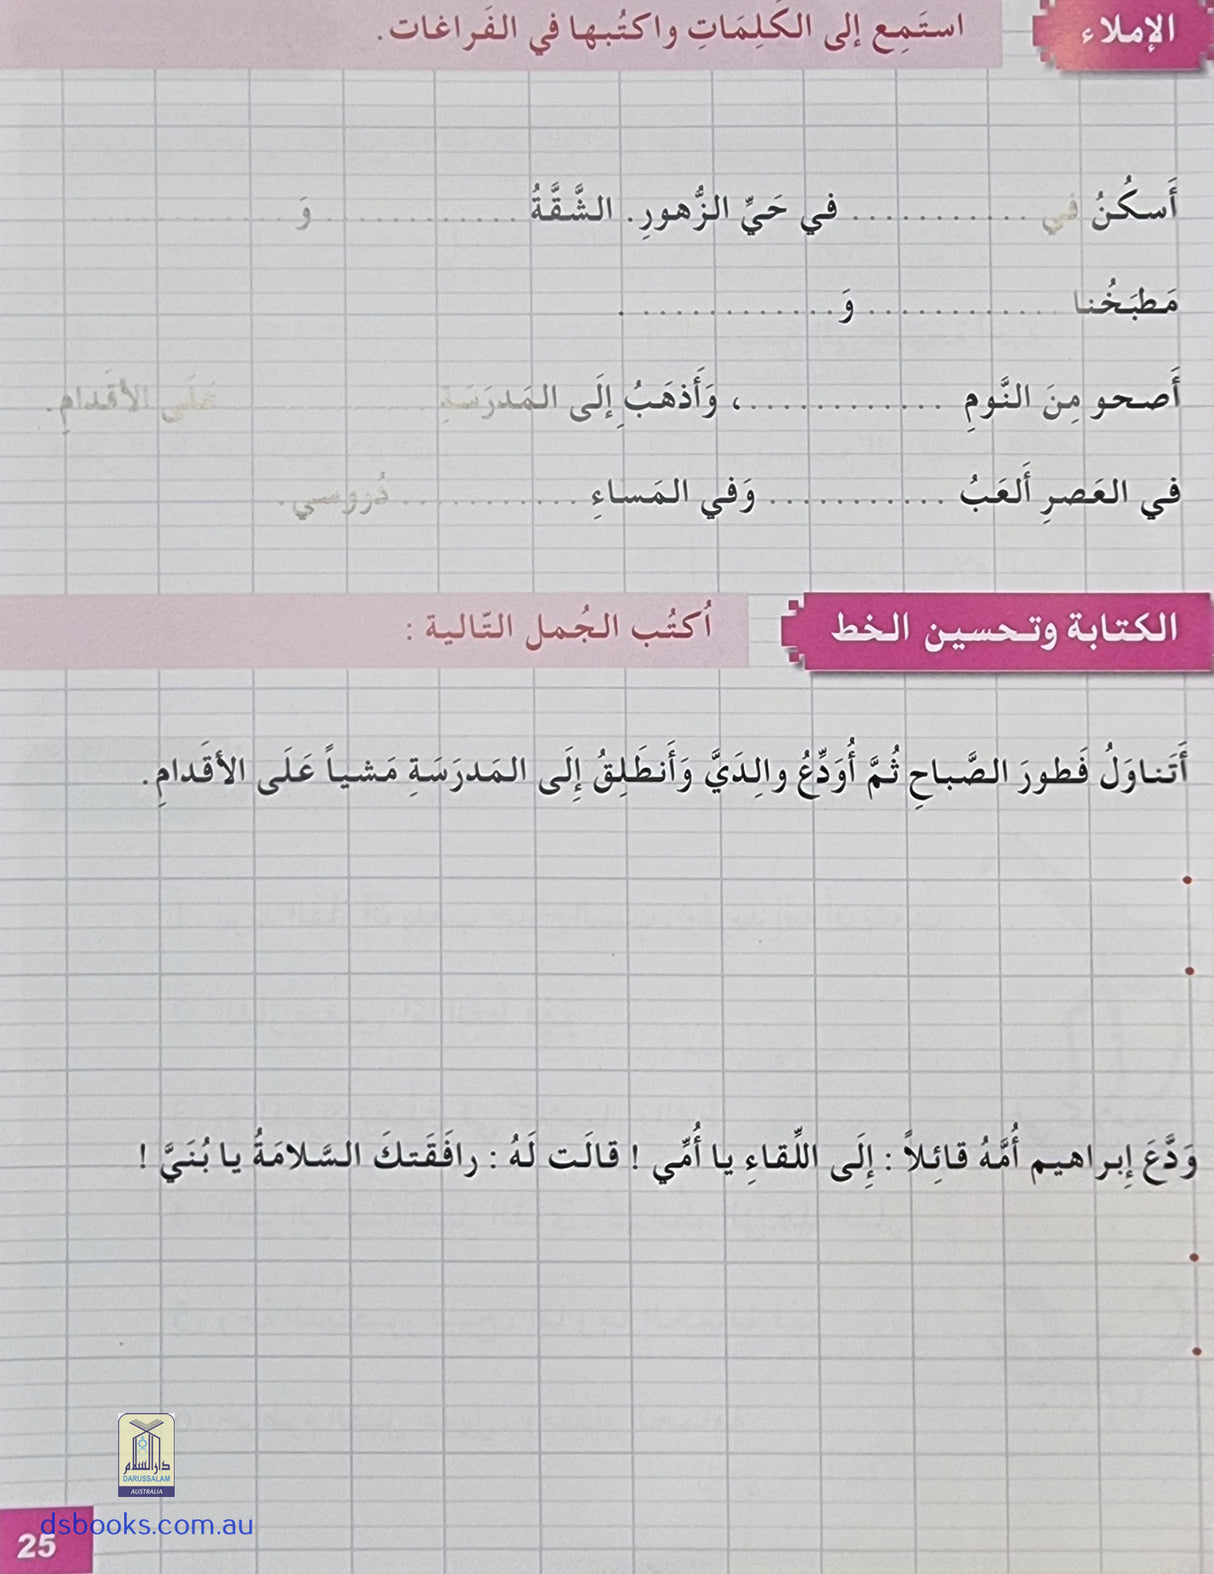 الإملاء
استَمِع إلى الكَلِمَاتِ واكتُبها في الفَراغات.
أَسكُنُ في ............ في حَيِّ الزُّهورِ. الشَّقَّةُ ............ وَ ............
مَطبَخُنا ............ وَ ............ .
أَصحو مِنَ النَّومِ ............، وَأَذهَبُ إِلَى المَدرَسَةِ ............ عَلَى الأقَدامِ.
في العَصرِ أَلعَبُ ............ وَفي المَساءِ ............ دُروسي.
الكتابة وتحسين الخط
اُكتُب الجُمل التّالية :
أَتَناوَلُ فَطورَ الصَّباحِ ثُمَّ أُوَدِّعُ والِدَيَّ وَأَنطَلِقُ إِلَى المَدرَسَةِ مَشياً عَلَى الأقَدامِ.
وَدَّعَ إِبراهيم أُمَّهُ قائِلاً : إِلَى اللِّقاءِ يا أُمِّي ! قالَت لَهُ : رافَقَتكَ السَّلامَةُ يا بُنَيَّ !
دار السلام
DARUSSALAM
AUSTRALIA
dsbooks.com.au
25